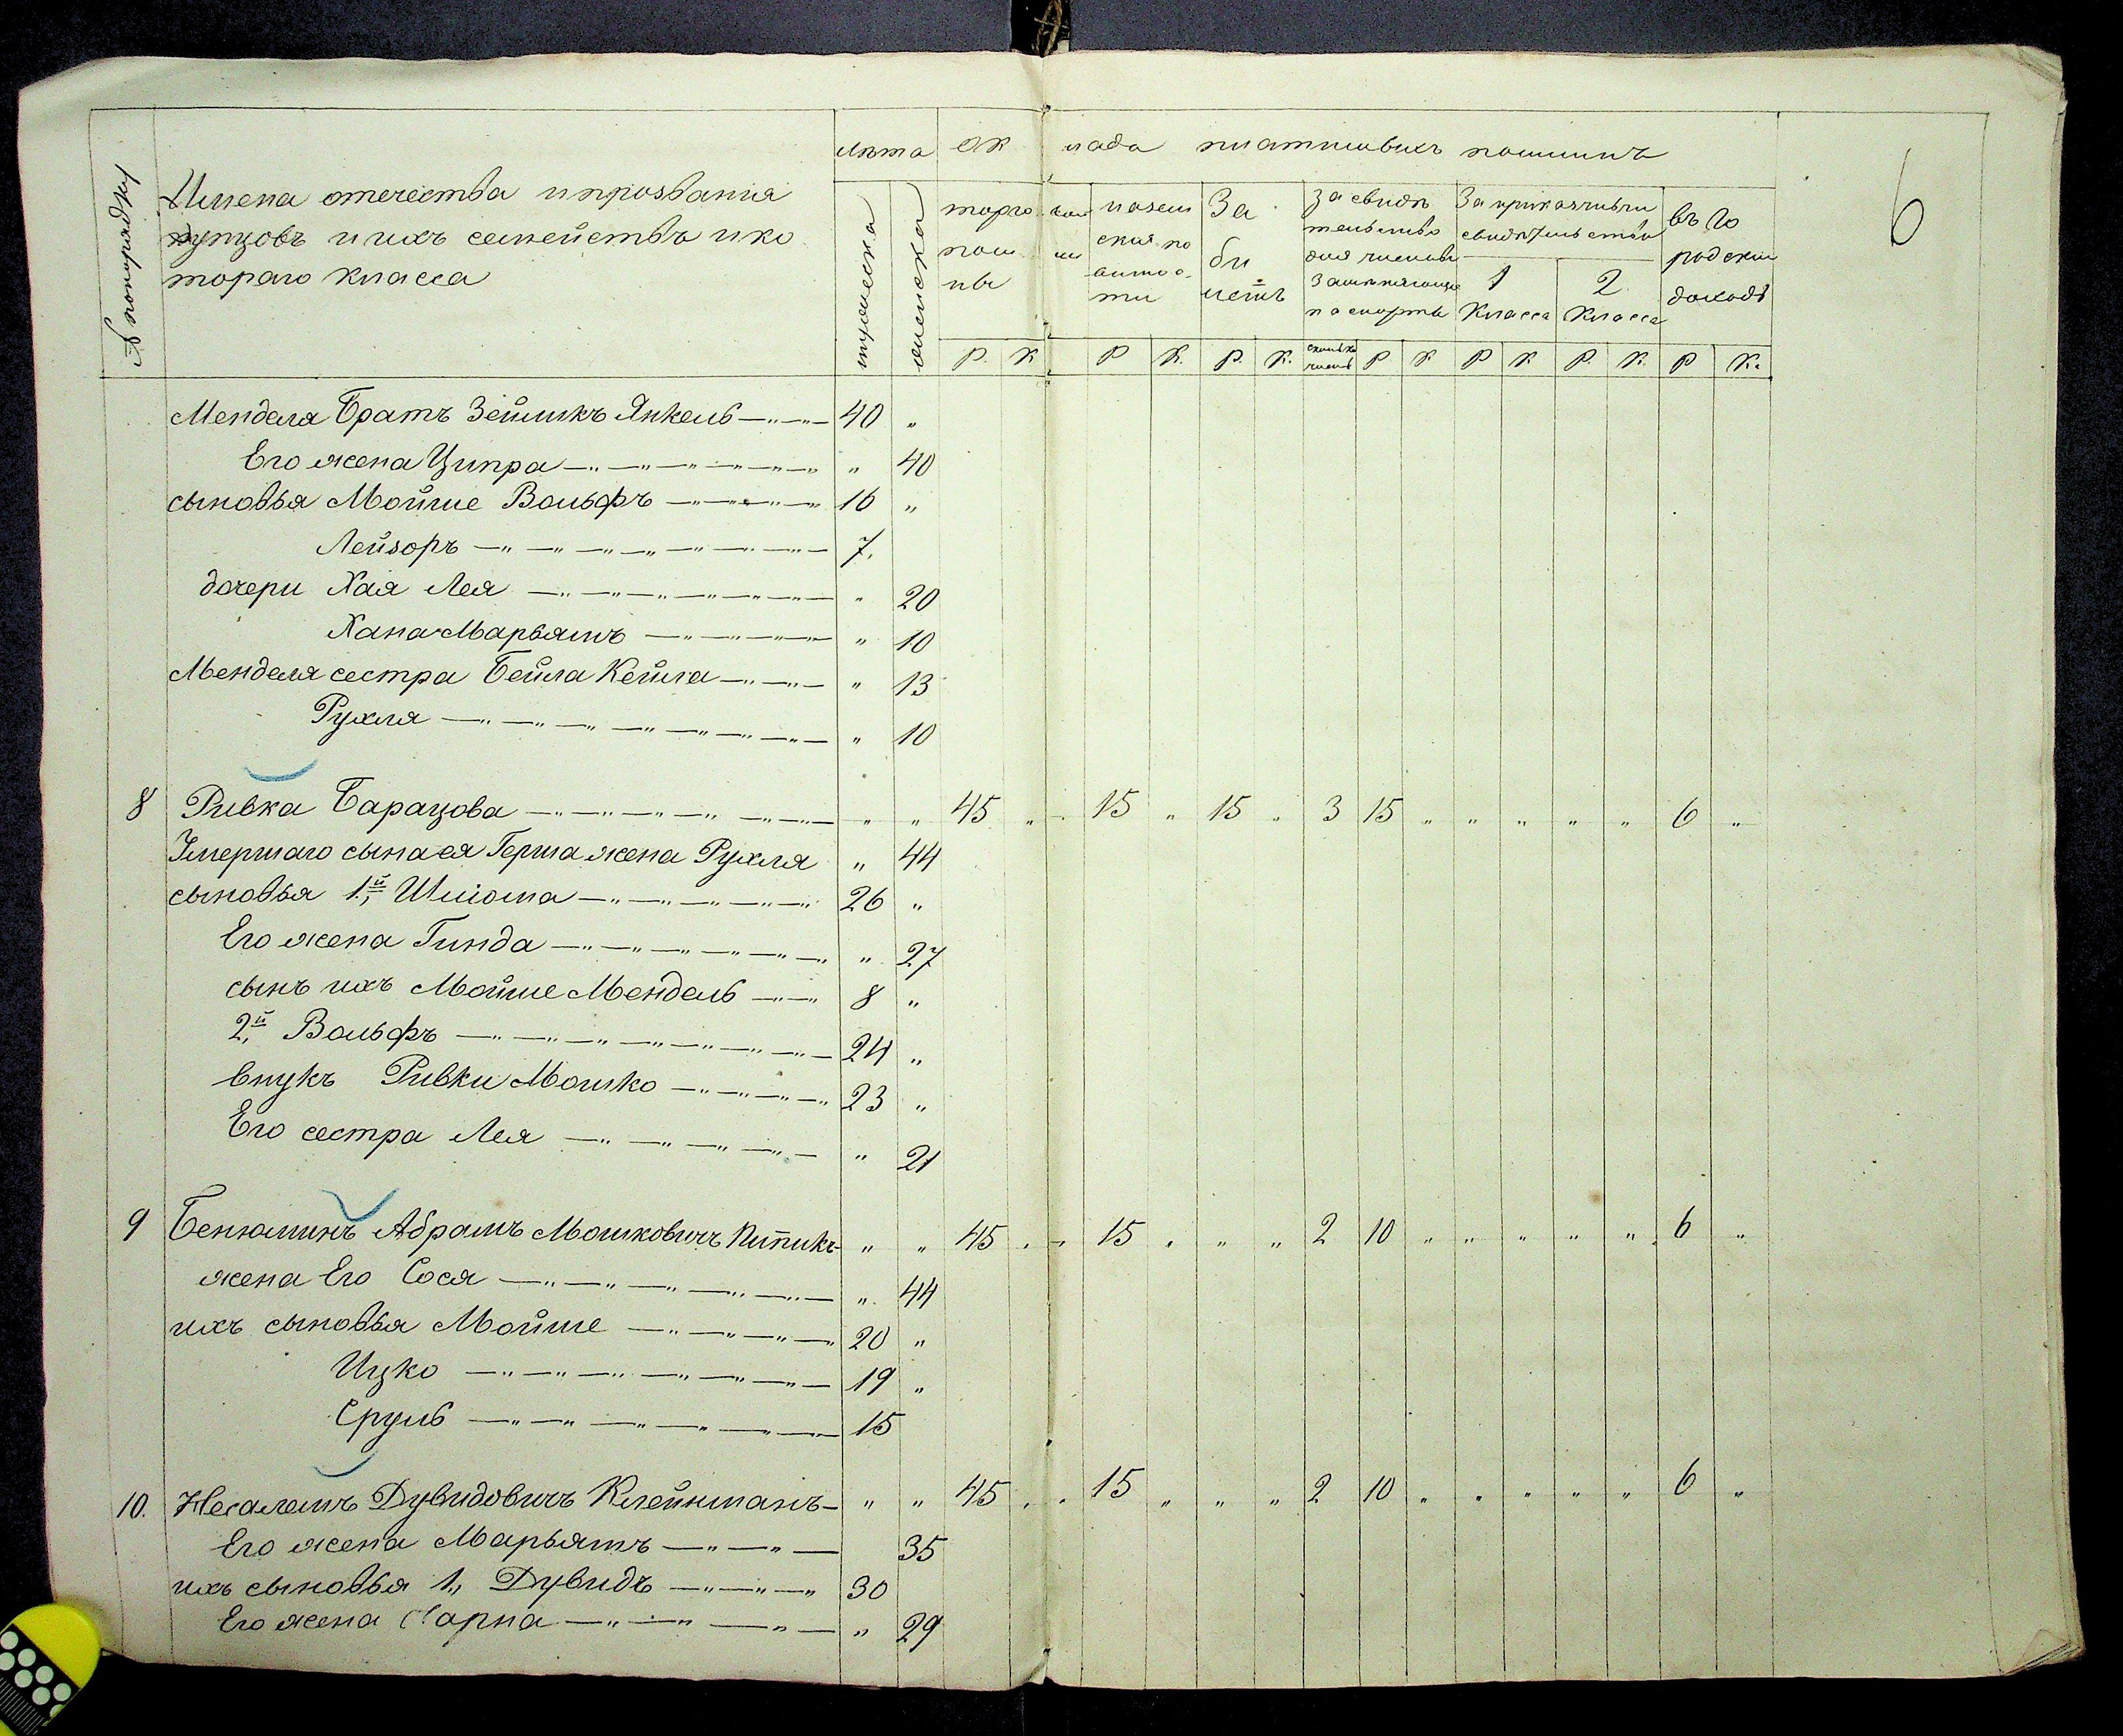 № попорядку
Имена отечества и прозвания
купцовъ и ихъ семействъ и ко
тораго класса
Лѣта
мужеска
женска
оклада платимыхъ пошлинъ
торго
пош
ны
За
би
летъ
за свидѣ
тельство
За прикащичьи
свидѣтельства
1
класса
2
класса
въ Го
родскій
доходъ
Р. К. Р К. Р. К. Р К Р К Р. К. Р К.
6
Менделя Братъ Зейликъ Янкель 40 „
Его жена Ципра „ 40
сыновья Мойше Вольфъ 16 „
Лейзоръ 7.
дочери Хая Лея „ 20
Хана Марьямъ „ 10
Менделя сестра Бейла Кейла „ 13
Рухля „ 10
8 Ривка Барацова „ „ 45 „ 15 „ 15 „ 3 15 „ „ „ „ „ 6 „
Умершаго сына ея Герша жена Рухля „ 44
сыновья 1й, Шліома 26 „
Его жена Гинда „ 27
сынъ ихъ Мойше Мендель 8 „
2й, Вольфъ 24 „
внукъ Ривки Мошко 23 „
Его сестра Лея „ 21
9 Бенюминъ Абрамъ Мошковичъ Пипикъ „ „ 45 „ 15 „ „ „ 2 10 „ „ „ „ „ 6 „
жена Его Сося „ 44
ихъ сыновья Мойше 20 „
Ицко 19 „
Сруль 15
10. Дувидовичъ Клейнманъ „ „ 45 „ 15 „ „ „ 2 10 „ „ „ „ „ 6 „
Его жена Марьямъ 35
ихъ сыновья 1, Дувидъ 30
Его жена Чарна „ 29